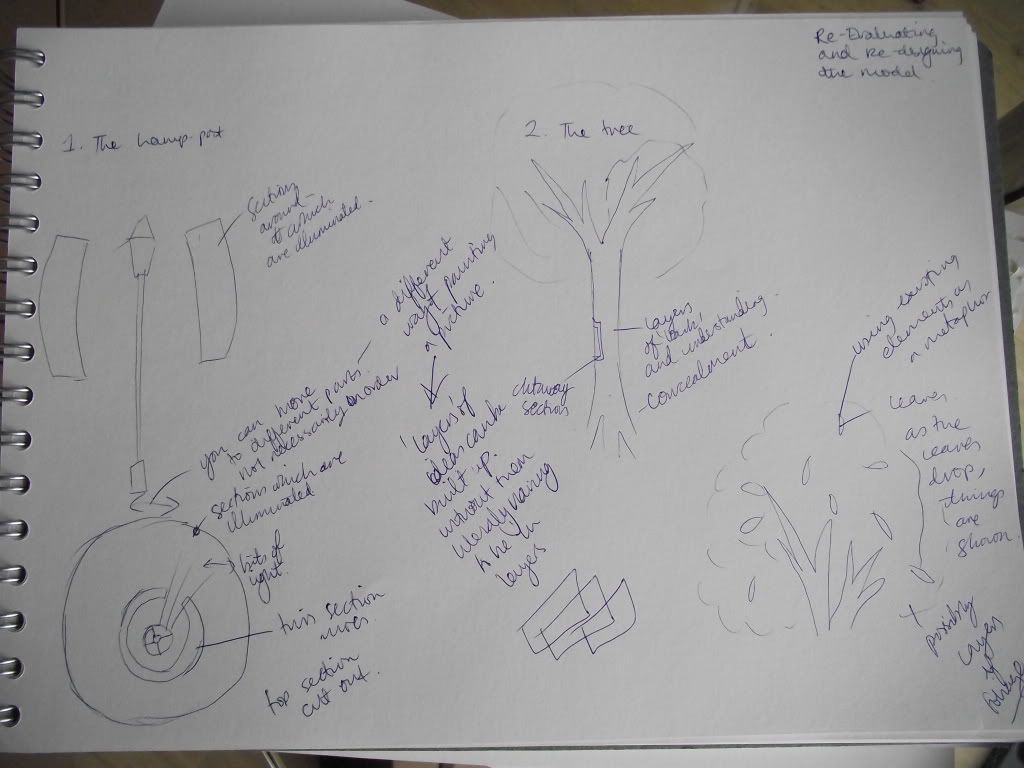 Re-Evaluating
and Re-designing
the model.
1. The Lamp post
Sections
around
of which
are illuminated.
you can move
to different parts.
not necessarily in order
a different
way of painting
a picture.
sections which are
illuminated
bits of
light.
this section
moves.
top section
cut out.
'layers of
ideas can be
built up.
without them
literally having
to be in
layers
2. The tree
layers
of bark,
and understanding.
- concealment.
cutaway
section
using existing
elements as
a metaphor
leaves.
as the
leaves
drop,
things
are
shown.
+
possibly
layers
of
foliage